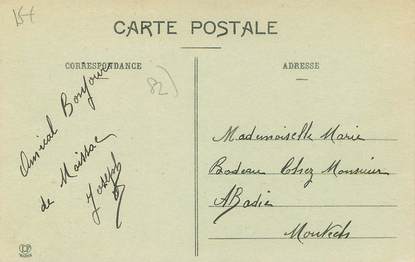 15+
CARTE POSTALE
CORRESPONDANCE
82)
Amical Bonjour
de Moissac
Joseph
ADRESSE
Mademoiselle Marie
Badeau Chez Monsieur
Abadie
Montech